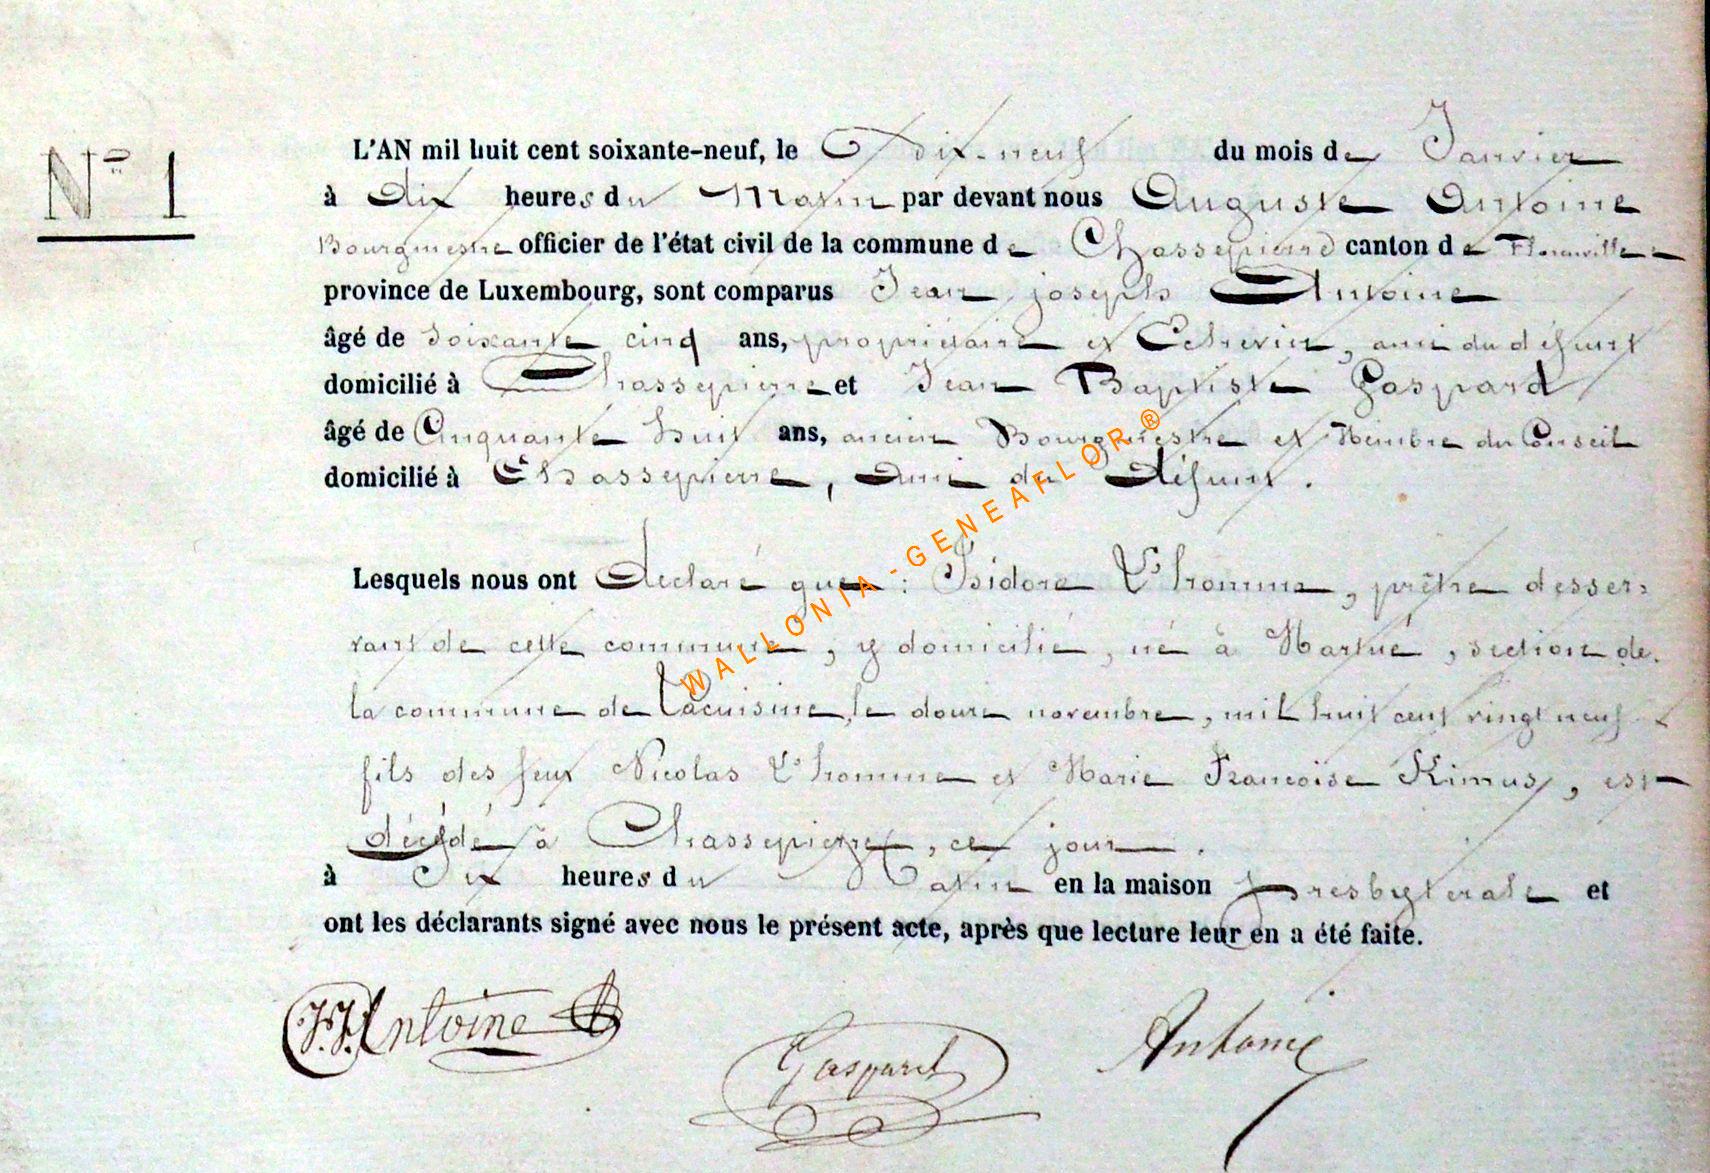 N° 1
L'AN mil huit cent soixante-neuf, le Dix-neuf du mois de Janvier
à dix heures du Matin par devant nous Auguste Antoine
Bourgmestre officier de l'état civil de la commune de Chassepierre canton de Florenville
province de Luxembourg, sont comparus Jean joseph Antoine
âgé de soixante cinq ans, propriétaire et Echevin, ami du défunt
domicilié à Chassepierre et Jean Baptiste Gaspard
âgé de Cinquante huit ans, ancien Bourgmestre et Membre du Conseil
domicilié à Chassepierre, ami du défunt.
Lesquels nous ont déclaré que : Isidore L'homme, prêtre desser-
vant de cette commune, y domicilié, né à Martué, section de
la commune de Lacuisine, le douze novembre, mil huit cent vingt neuf
fils des feux Nicolas L'homme et Marie Francoise Kimus, est
décédé à Chassepierre, ce jour.
à Six heures du Matin en la maison presbyterale et
ont les déclarants signé avec nous le présent acte, après que lecture leur en a été faite.
J.J. Antoine Gaspard Antoine
WALLONIA - GENEAFLOR ®